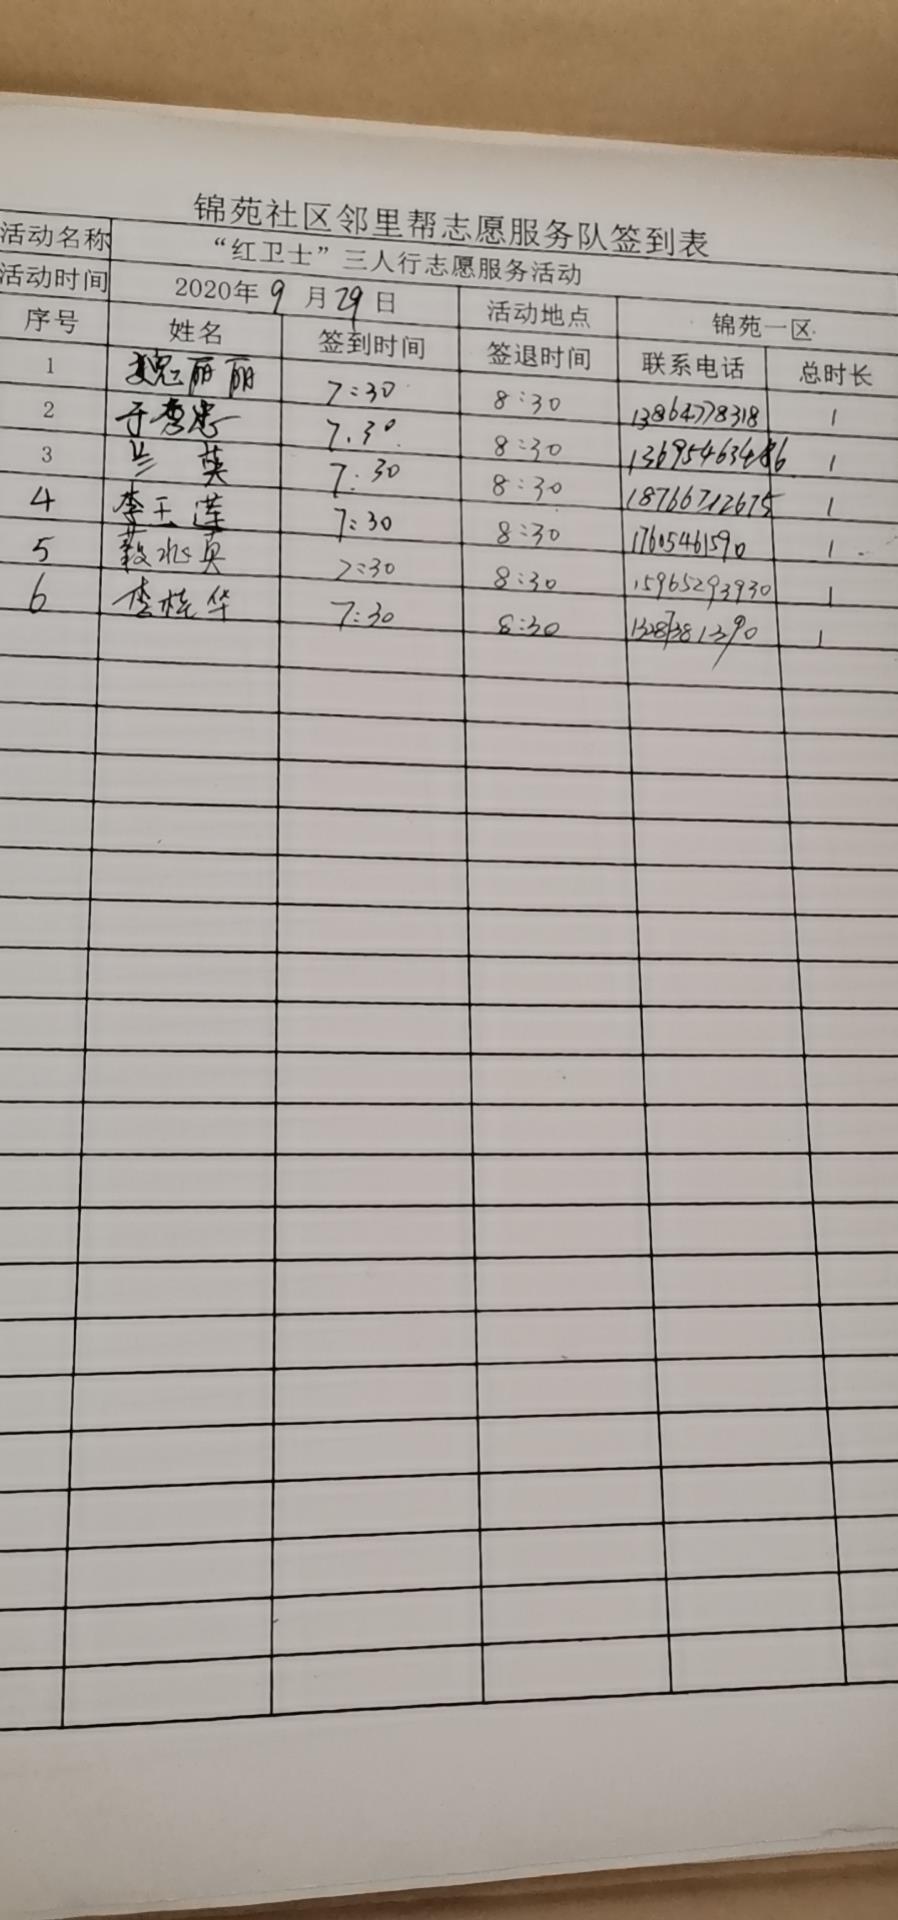 锦苑社区邻里帮志愿服务队签到表
活动名称 “红卫士”三人行志愿服务活动
活动时间 2020年9月29日 活动地点 锦苑一区
序号 姓名 签到时间 签退时间 联系电话 总时长
1 魏丽丽 7:30 8:30 13864778318 1
2 于秀忠 7:30 8:30 13695463486 1
3 兰英 7:30 8:30 18766712675 1
4 李玉莲 7:30 8:30 17605461590 1
5 7:30 8:30 15965293930 1
6 李桂华 7:30 8:30 13287381390 1